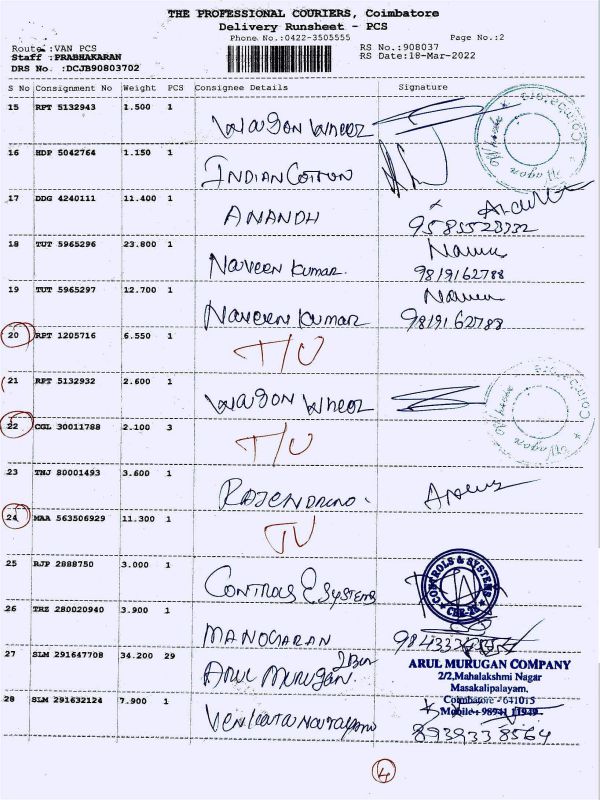 THE PROFESSIONAL COURIERS, Coimbatore
Delivery Runsheet - PCS
Phone No.:0422-3505555 Page No.:2
Route :VAN PCS RS No.:908037
Staff :PRABHAKARAN RS Date:18-Mar-2022
DRS No. :DCJB90803702
S No Consignment No Weight PCS Consignee Details Signature
15 RPT 5132943 1.500 1
Wagon Wheel
16 HDP 5042764 1.150 1
INDIAN COTTON
17 DDG 4240111 11.400 1
ANANDH 9585523732
18 TUT 5965296 23.800 1
Naveen Kumar. 9819162788
19 TUT 5965297 12.700 1
Naveen Kumar 9819162788
20 RPT 1205716 6.550 1
T/U
21 RPT 5132932 2.600 1
Wagon Wheel
22 CGL 30011788 2.100 3
T/U
23 TMJ 80001493 3.600 1
24 MAA 563506929 11.300 1
TU
25 RJP 2888750 3.000 1
CONTROLS & SYSTEMS
CONTROLS & SYSTEMS
26 TRZ 280020940 3.900 1
MANOGARAN
27 SLM 291647708 34.200 29
ARUL MURUGAN
ARUL MURUGAN COMPANY
2/2,Mahalakshmi Nagar
Masakalipalayam,
Coimbatore - 641015
Mobile : 98941 11949
28 SLM 291632124 7.900 1
8939338564
4